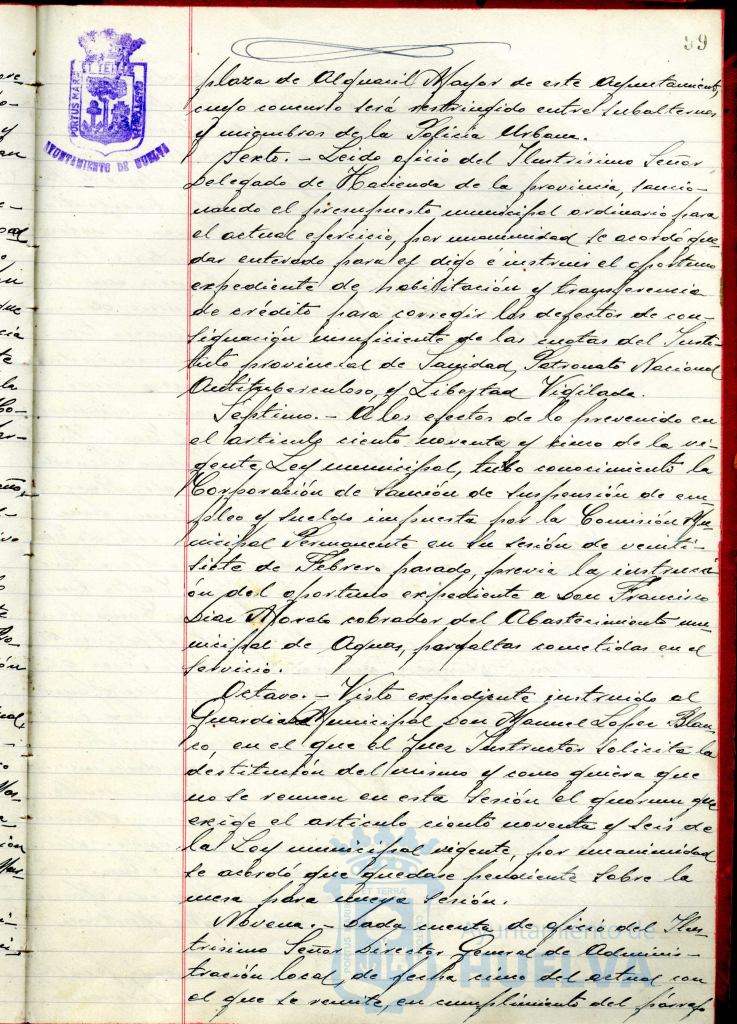 59
PORTUS MARIS ET TERRAE CUSTODIA
AYUNTAMIENTO DE HUELVA
plaza de Alguacil Mayor de este Ayuntamiento,
cuyo concurso será restringido entre subalternos
y miembros de la Policia Urbana.
Sexto.- Leido oficio del Ilustrisimo Señor
Delegado de Hacienda de la provincia, sancio-
nando el presupuesto municipal ordinario para
el actual ejercicio, por unanimidad se acordó que-
dar enterado para el digo e instruir el oportuno
expediente de habilitación y transferencia
de crédito para corregir los defectos de con-
signación insuficiente de las cuotas del Insti-
tuto provincial de Sanidad, Patronato Nacional
Antituberculoso, y Libertad Vigilada.
Septimo.- A los efectos de lo prevenido en
el articulo ciento noventa y cinco de la vi-
gente Ley municipal, tubo conocimiento la
Corporación de sanción de suspensión de em-
pleo y sueldo impuesta por la Comisión Mu-
nicipal Permanente en su sesión de veinti-
siete de Febrero pasado, previa la instrucci-
ón del oportuno expediente a Don Francisco
Diaz Morato cobrador del Abastecimiento mu-
nicipal de Aguas, por faltas cometidas en el
servicio.
Octavo.- Visto expediente instruido al
Guardia Municipal Don Manuel Lopez Blan-
co, en el que el Juez Instructor solicita la
destitución del mismo y como quiera que
no se reunen en esta sesión el quorum que
exige el articulo ciento noventa y seis de
la Ley municipal vigente, por unanimidad
se acordó que quedase pendiente sobre la
mesa para nueva sesión.
Novena.- Dada cuenta de oficio del Ilus-
trisimo Señor Director General de Adminis-
tración local, de fecha cinco del actual con
el que se remite, en cumplimiento del párrafo
Ayuntamiento de
HUELVA